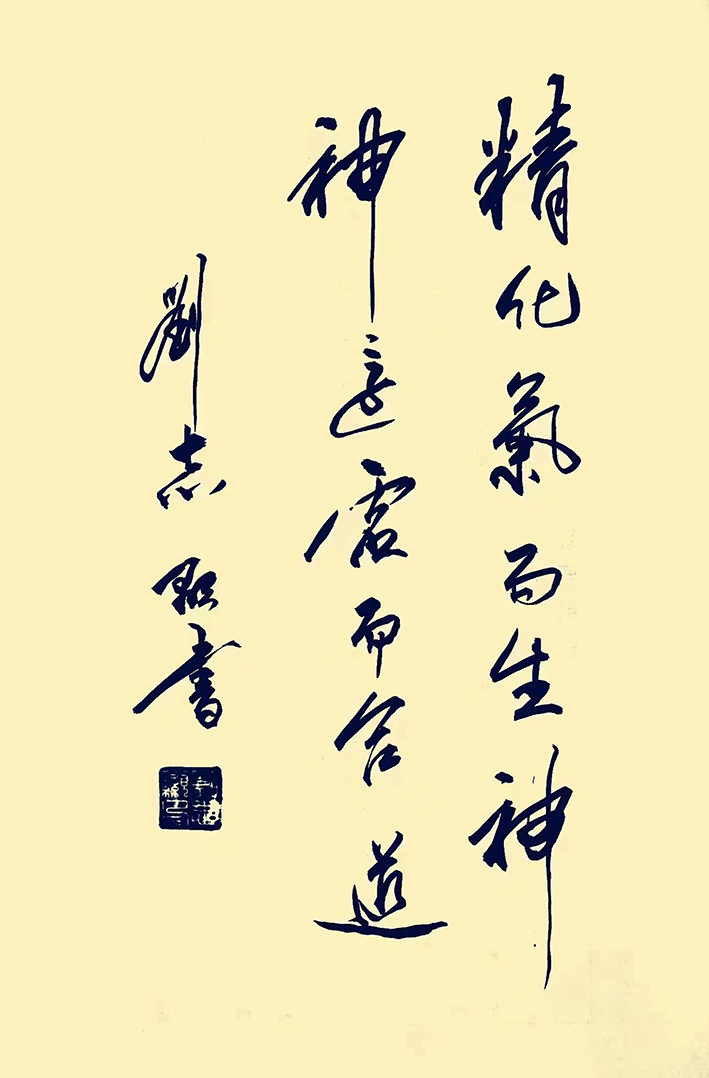 精化氣而生神
神還虛而合道
劉志 書